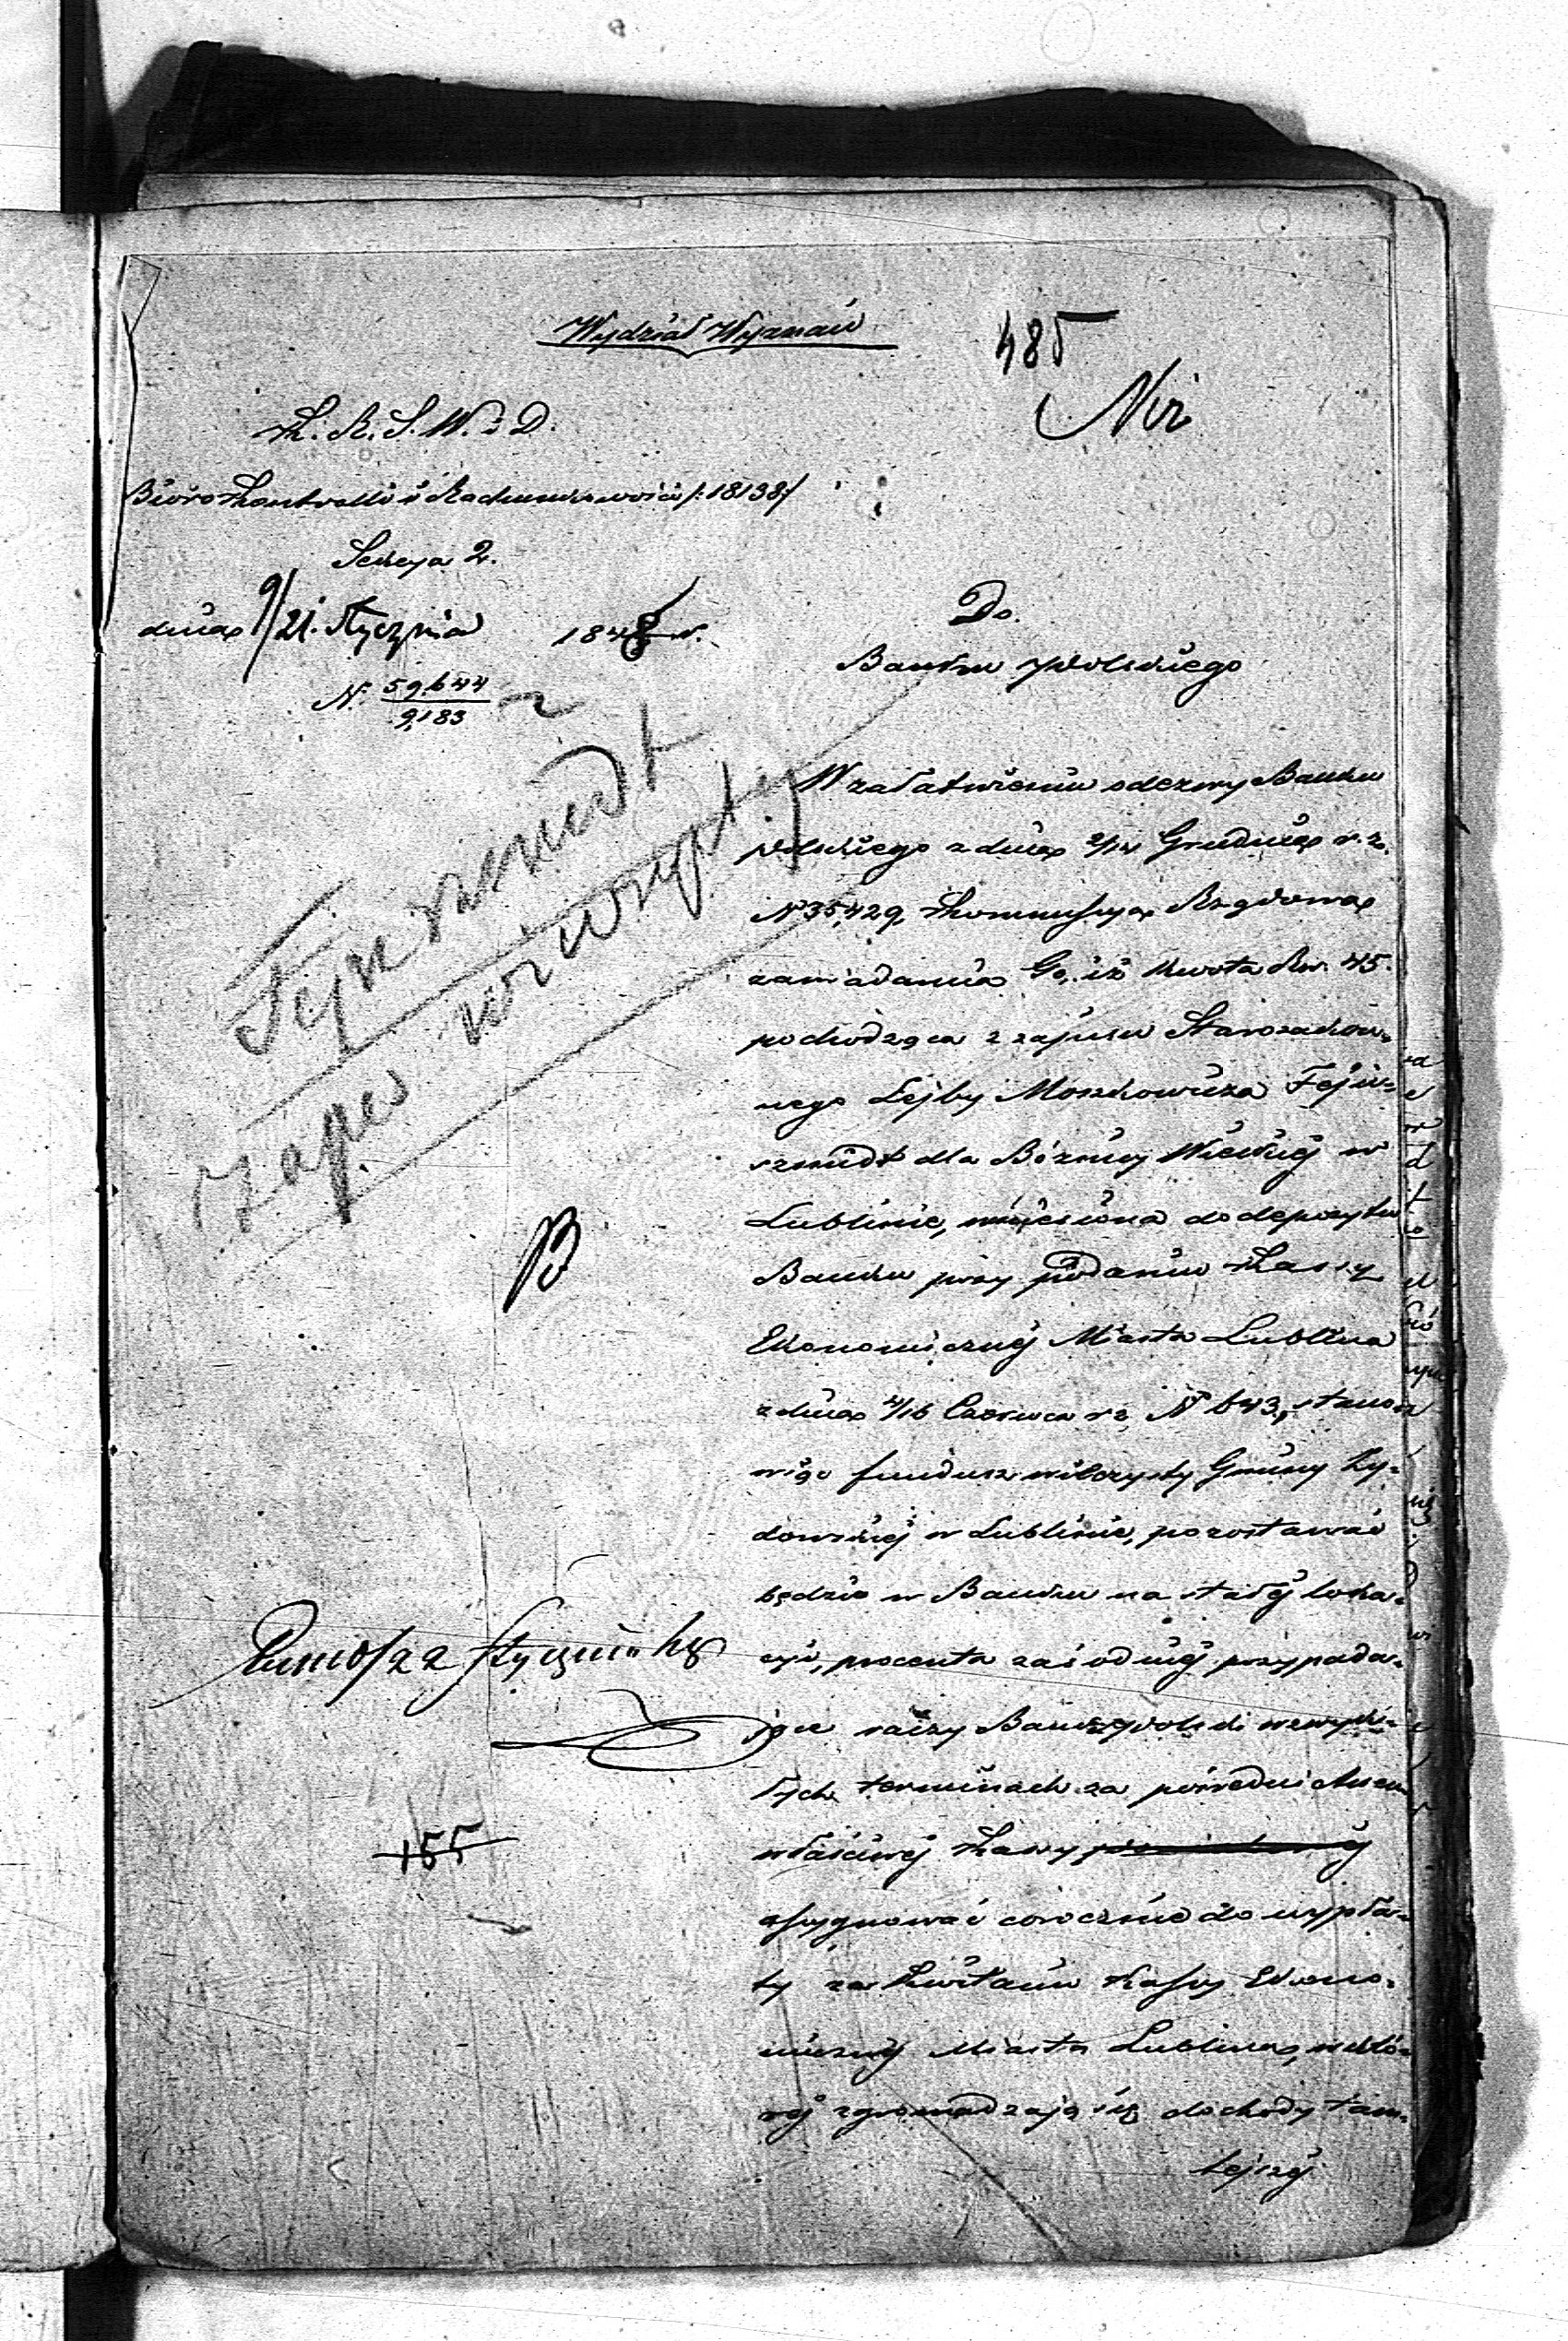 Wydział Wyznań
485
Nir
K. R. S. W. i D.
Biuro Kontrolli i Rachunkowości /: 18138 :/
Sekcya 2.
dnia 9/21. Stycznia 1848 r.
N. 59,644
9,183
Do.
Banku Polskiego
Fejnszmidt
Zapis wieczysty
W załatwieniu odezwy Banku
Polskiego z dnia 2/14 Grudnia r. z.
N 35,429, Kommissya Rządowa
zawiadamia Go, iż kwota Rsr. 45.
pochodząca z zapisu Starozakon=
nego Lejby Moszkowicza Fejn=
szmidt dla Bóżnicy Wielkiej w
Lublinie, wniesiona do depozytu
Banku przy podaniu Kassy
Ekonomicznej Miasta Lublina
z dnia 4/16 Czerwca r z N 643, stano
wiąc fundusz wieczysty Gminy Ży=
dowskiej w Lublinie, pozostawać
będzie w Banku na stałej loka=
cyi, procenta zaś od niej przypada=
jące raczy Bank Polski w zwyk=
łych terminach za pośrednictwem
właściwej Kassy
assygnować corocznie do wypła=
ty za kwitami Kassy Ekono=
micznej Miasta Lublina, w któ=
rej zgromadzają się dochody tam=
tejszej
B
155